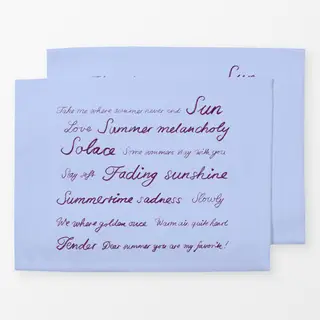 Sun
Take me where summer never end Sun
Love Summer melancholy
Solace Some summers stay with you
Stay soft Fading sunshine
Summertime sadness Slowly
We where golden once Warm air, quiet heart
Tender Dear summer you are my favorite!